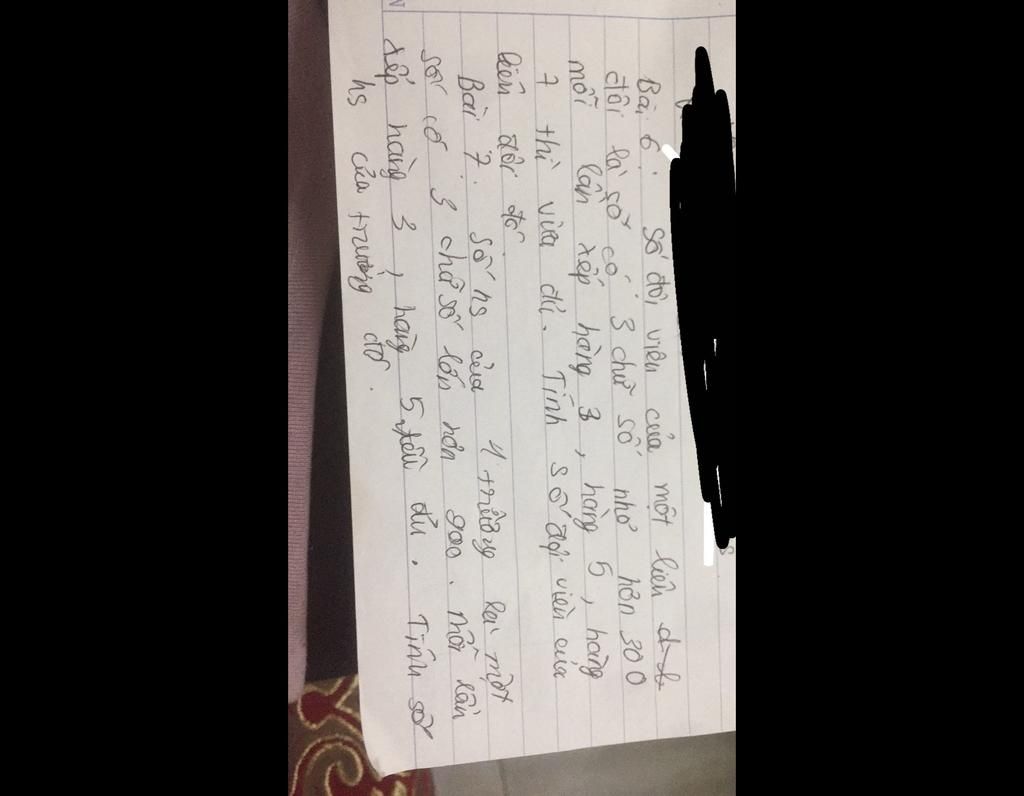 Bài 6: Số đội viên của một liên
đội là số có 3 chữ số nhỏ hơn 300
mỗi lần xếp hàng 3, hàng 5, hàng
7 thì vừa đủ. Tính số đội viên của
liên đội đó
Bài 7. Số hs của 1 trường là một
số có 3 chữ số lớn hơn 900. mỗi lần
xếp hàng 3, hàng 5 đều đủ. Tính số
hs của trường đó.